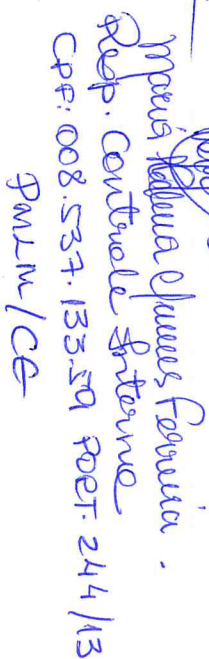 Maria Rafaela Chaves Ferreira.
Resp. Controle Interno
CPF: 008.537.133.59 PORT. 244/13
PMLN/CE